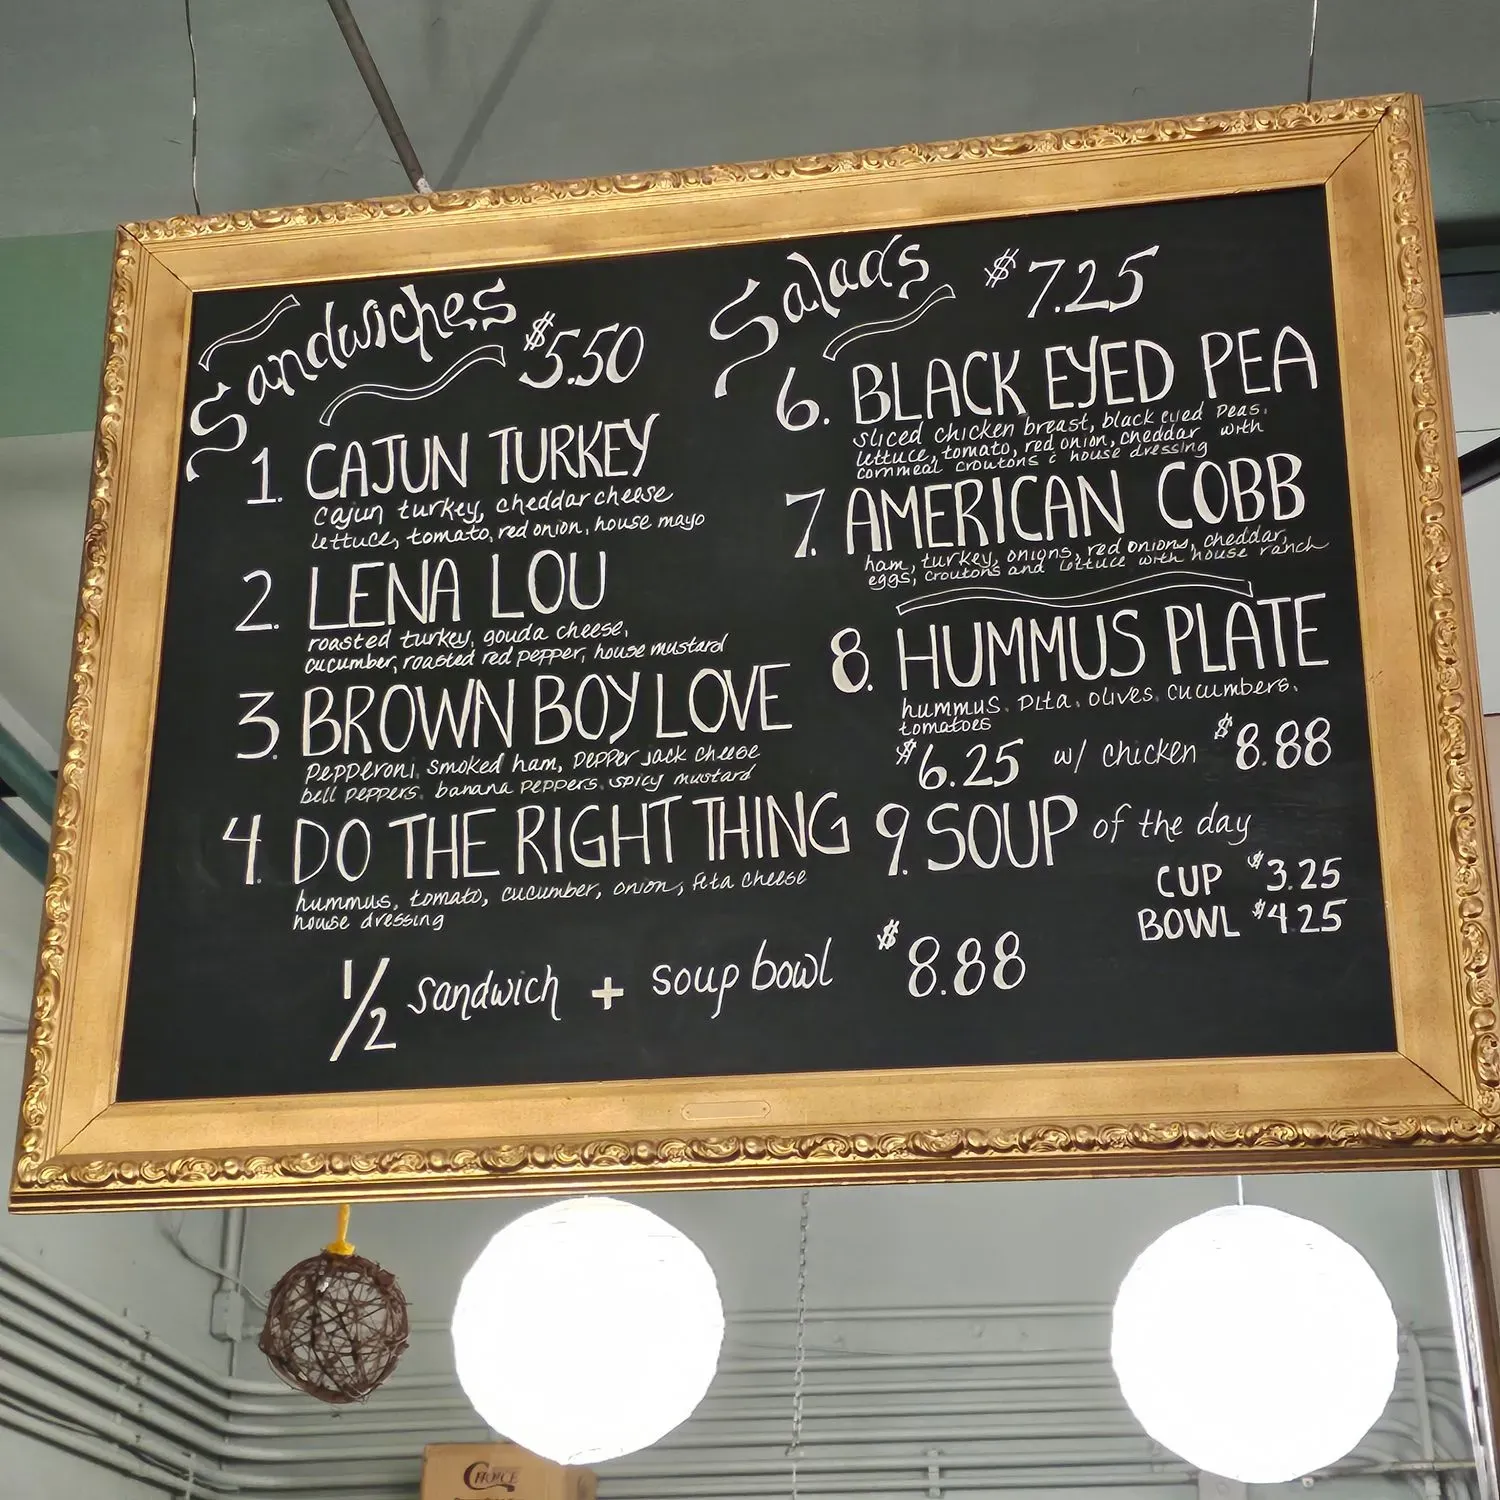 Sandwiches $5.50
1. CAJUN TURKEY
cajun turkey, cheddar cheese
lettuce, tomato, red onion, house mayo
2. LENA LOU
roasted turkey, gouda cheese,
cucumber, roasted red pepper, house mustard
3. BROWN BOY LOVE
pepperoni, smoked ham, pepper jack cheese
bell peppers, banana peppers, spicy mustard
4. DO THE RIGHT THING
hummus, tomato, cucumber, onion, feta cheese
house dressing
Salads $7.25
6. BLACK EYED PEA
sliced chicken breast, black eyed peas,
lettuce, tomato, red onion, cheddar with
cornmeal croutons & house dressing
7. AMERICAN COBB
ham, turkey, onions, red onions, cheddar,
eggs, croutons and lettuce with house ranch
8. HUMMUS PLATE
hummus, pita, olives, cucumbers,
tomatoes
$6.25 w/ chicken $8.88
9. SOUP of the day
CUP $3.25
BOWL $4.25
1/2 sandwich + soup bowl $8.88
CHOICE